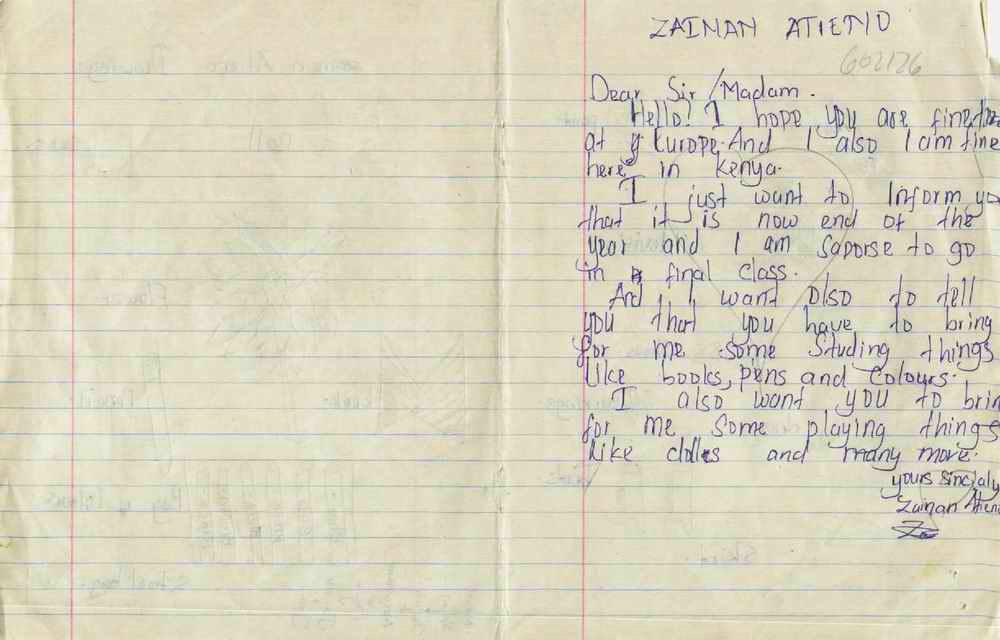 ZAINAN ATIENO
602126
Dear Sir /Madam.
Hello! I hope you are fine
at Europe. And I also I am fine
here in Kenya.
I just want to Inform yo
that it is now end of the
year and I am saporse to go
in final class.
And I want also to tell
you that you have to bring
for me some Studing things
Like books, pens and Colours.
I also want you to brin
for me some playing things
Like dolles and many more.
yours Sincialy
Zainan Atieno